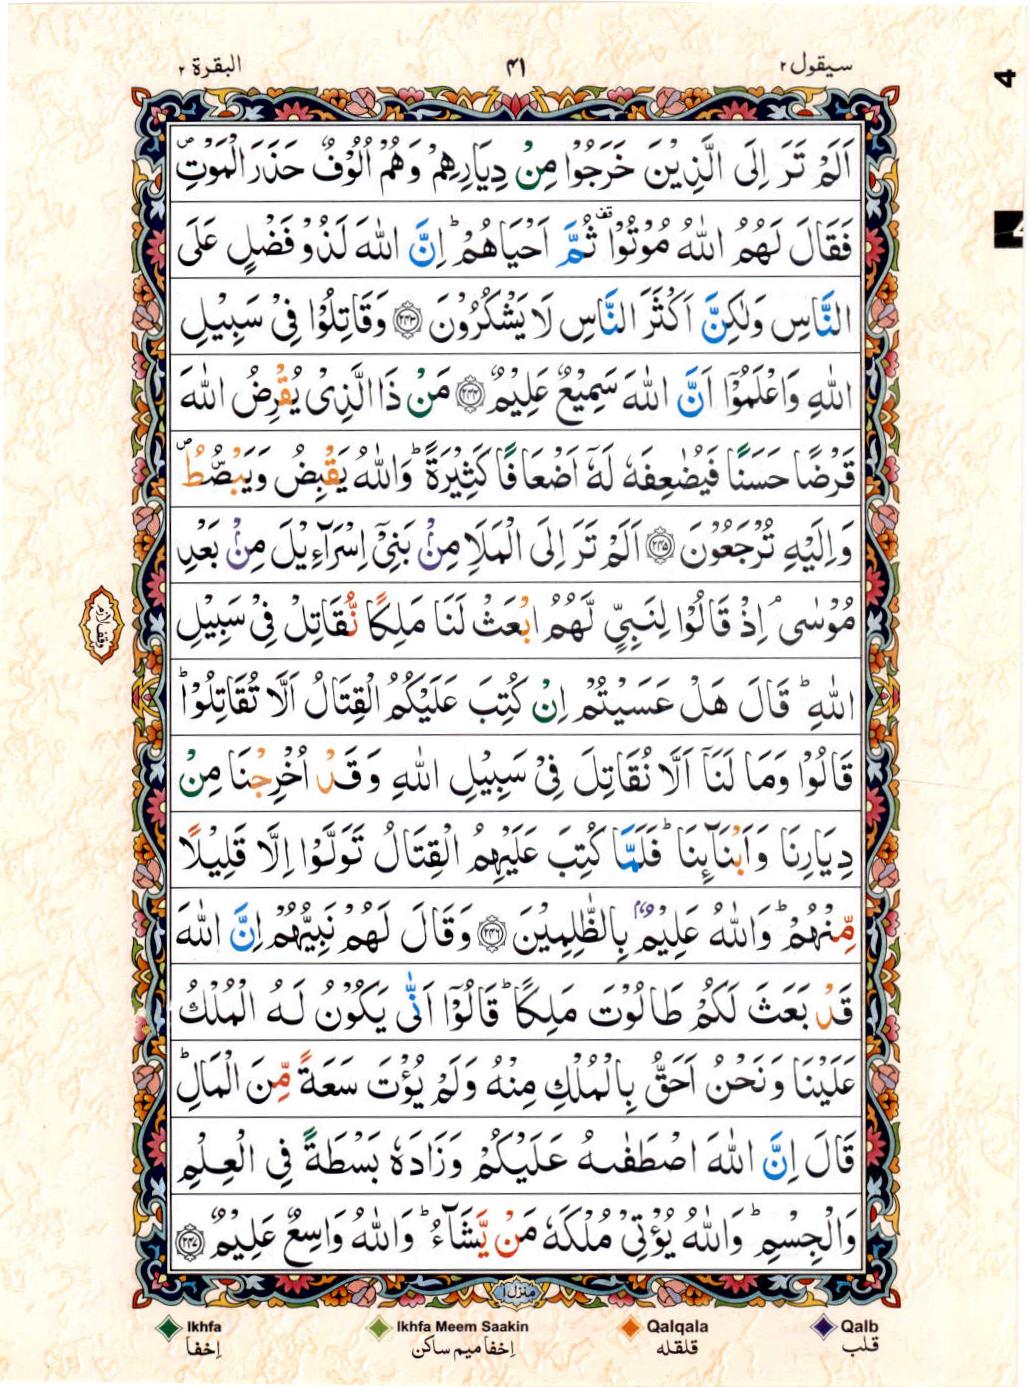 سيقول ٢ ۴۱ البقرة ٢
4
اَلَمْ تَرَ اِلَى الَّذِيْنَ خَرَجُوْا مِنْ دِيَارِهِمْ وَهُمْ اُلُوْفٌ حَذَرَ الْمَوْتِ ۪
فَقَالَ لَهُمُ اللّٰهُ مُوْتُوْا ۫ ثُمَّ اَحْيَاهُمْ ؕ اِنَّ اللّٰهَ لَذُوْ فَضْلٍ عَلَى
النَّاسِ وَلٰكِنَّ اَكْثَرَ النَّاسِ لَا يَشْكُرُوْنَ ﴿۲۴۳﴾ وَقَاتِلُوْا فِىْ سَبِيْلِ
اللّٰهِ وَاعْلَمُوْٓا اَنَّ اللّٰهَ سَمِيْعٌ عَلِيْمٌ ﴿۲۴۴﴾ مَنْ ذَا الَّذِىْ يُقْرِضُ اللّٰهَ
قَرْضًا حَسَنًا فَيُضٰعِفَهٗ لَهٗٓ اَضْعَافًا كَثِيْرَةً ؕ وَاللّٰهُ يَقْبِضُ وَيَبْصُۜطُ ۪
وَاِلَيْهِ تُرْجَعُوْنَ ﴿۲۴۵﴾ اَلَمْ تَرَ اِلَى الْمَلَاِ مِنْۢ بَنِىْٓ اِسْرَآءِيْلَ مِنْۢ بَعْدِ
مُوْسٰى ۘ اِذْ قَالُوْا لِنَبِىٍّ لَّهُمُ ابْعَثْ لَنَا مَلِكًا نُّقَاتِلْ فِىْ سَبِيْلِ
وقف لازم
اللّٰهِ ؕ قَالَ هَلْ عَسَيْتُمْ اِنْ كُتِبَ عَلَيْكُمُ الْقِتَالُ اَلَّا تُقَاتِلُوْا ؕ
قَالُوْا وَمَا لَنَآ اَلَّا نُقَاتِلَ فِىْ سَبِيْلِ اللّٰهِ وَقَدْ اُخْرِجْنَا مِنْ
دِيَارِنَا وَاَبْنَآئِنَا ؕ فَلَمَّا كُتِبَ عَلَيْهِمُ الْقِتَالُ تَوَلَّوْا اِلَّا قَلِيْلًا
مِّنْهُمْ ؕ وَاللّٰهُ عَلِيْمٌۢ بِالظّٰلِمِيْنَ ﴿۲۴۶﴾ وَقَالَ لَهُمْ نَبِيُّهُمْ اِنَّ اللّٰهَ
قَدْ بَعَثَ لَكُمْ طَالُوْتَ مَلِكًا ؕ قَالُوْٓا اَنّٰى يَكُوْنُ لَهُ الْمُلْكُ
عَلَيْنَا وَنَحْنُ اَحَقُّ بِالْمُلْكِ مِنْهُ وَلَمْ يُؤْتَ سَعَةً مِّنَ الْمَالِ ؕ
قَالَ اِنَّ اللّٰهَ اصْطَفٰىهُ عَلَيْكُمْ وَزَادَهٗ بَسْطَةً فِى الْعِلْمِ
وَالْجِسْمِ ؕ وَاللّٰهُ يُؤْتِىْ مُلْكَهٗ مَنْ يَّشَآءُ ؕ وَاللّٰهُ وَاسِعٌ عَلِيْمٌ ﴿۲۴۷﴾
منزل ۱
Ikhfa Ikhfa Meem Saakin Qalqala Qalb
إخفا إخفا ميم ساكن قلقله قلب